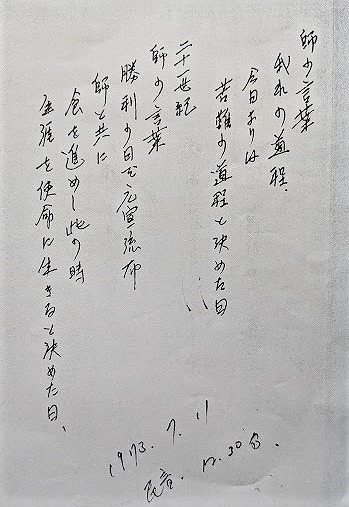 師の言葉
我れの道程、
今日よりは
苦難の道程と決めた日
二十一世紀
師の言葉
勝利の日ぞ広宣流布
師と共に
食を進めし此の時
生涯を使命に生きると決めた日、
1973. 7. 11
民音. 12.30分.